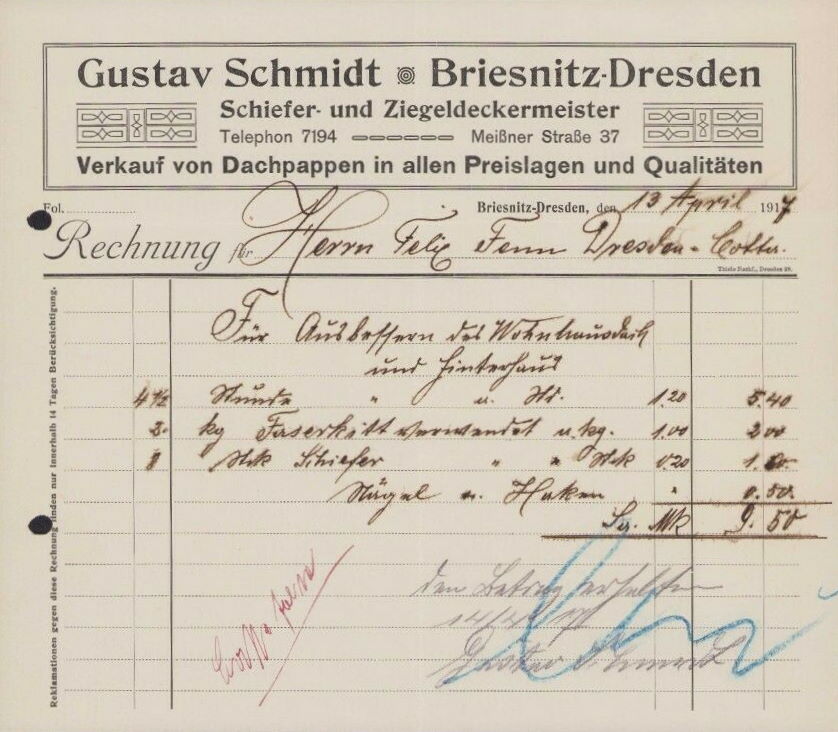 Gustav Schmidt Briesnitz-Dresden
Schiefer- und Ziegeldeckermeister
Telephon 7194 Meißner Straße 37
Verkauf von Dachpappen in allen Preislagen und Qualitäten
Fol. Briesnitz-Dresden, den 13 April 1917
Rechnung für Herrn Felix Fenn Dresden-Cotta.
Thiele Nachf., Dresden 28.
Für Ausbessern des Wohnhausdach
und Hinterhaus
4 1/2 Stunde " a. Std. 1.20 5.40
2. kg Faserkitt verwendet a. kg. 1.00 2.00
Stck Schiefer " " Stck 0.20
Nägel u. Haken " 0.50.
Sa. Mk 9.50
den Betrag erhalten
Gustav Schmidt
Reklamationen gegen diese Rechnung finden nur innerhalb 14 Tagen Berücksichtigung.